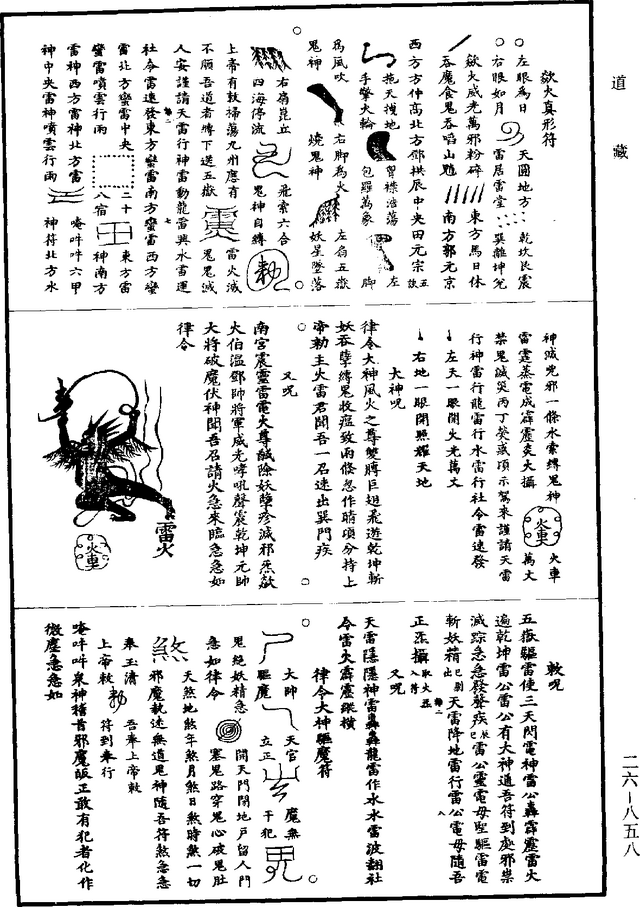 道藏
歘火真形符
左眼為日
右眼如月
天圓地方
雷居雷堂
乾坎艮震
巽離坤兌
歘火威光萬邪粉碎
吞魔食鬼吞啗山魈
東方馬日休
南方郭元京
西方方仲高北方鄧拱辰中央田元宗
左
拖天摸地
手擎火輪
曾襟浩蕩
包羅萬象
左
脚
為風吹
鬼神
右脚為火
燒鬼神
左扇五嶽
妖星墜落
右扇崑丘
四海停流
飛索六合
鬼神自縛
上帝有敕掃蕩九州應有
不順吾道者縛下送五嶽
雷火滅
鬼鬼滅
人安謹請天雷行神雷動龍雷興水雷運
社令雷速發東方蠻雷南方蠻雷西方蠻
雷北方蠻雷中央
蠻雷噴雲行雨
二十
八宿
東方雷
神南方
雷神西方雷神北方雷
神中央雷神噴雲行雨
唵吽吽六甲
神符北方水
神滅兇邪一條水索縛鬼神
雷霆蒸電成霹靂炎火攝
禁鬼滅災丙丁癸惑項示駕來謹請天雷
火車
火車
萬丈
行神雷行龍雷行水雷行社令雷速發
左天一眼開火光萬丈
右地一眼開照耀天地
大神呪
律令大神風火之尊雙髆巨翅飛遊乾坤斬
妖吞孽縛鬼收瘟致雨倏忽作晴項分持上
帝勅主火雷君聞吾一召速出巽門疾
又呪
南宮震靈雷電火尊馘除妖孽殄滅邪炁歘
火伯温鄧帥將軍威光哮吼聲震乾坤元帥
大將破魔伏神聞吾召請火急來臨急急如
律令
雷火
火車
敕呪
五嶽驅雷使三天閃電神雷公轟霹靂雷火
遍乾坤雷公雷公有大神通吾符到處邪祟
滅踪急急發聲疾雷公靈電母聖驅雷電
斬妖精出天雷降地雷行雷公電母隨吾
正炁攝取火五
入符
又呪
天雷隱隱神雷轟轟龍雷作水水雷波翻社
令雷火霹靂縱橫
律令大神驅魔符
大帥
驅魔
天官
立正
魔無
干犯
鬼絕妖精急
急如律令
開天門閉地戶留人門
塞鬼路穿鬼心破鬼肚
煞
天煞地煞年煞月煞日煞時煞一切
邪魔執迷無道鬼神隨吾符煞急急
奉玉清
上帝敕
勑
吾奉上帝敕
符到奉行
唵吽吽泉神稽首邪魔皈正敢有犯者化作
微塵急急如
二六－八五八